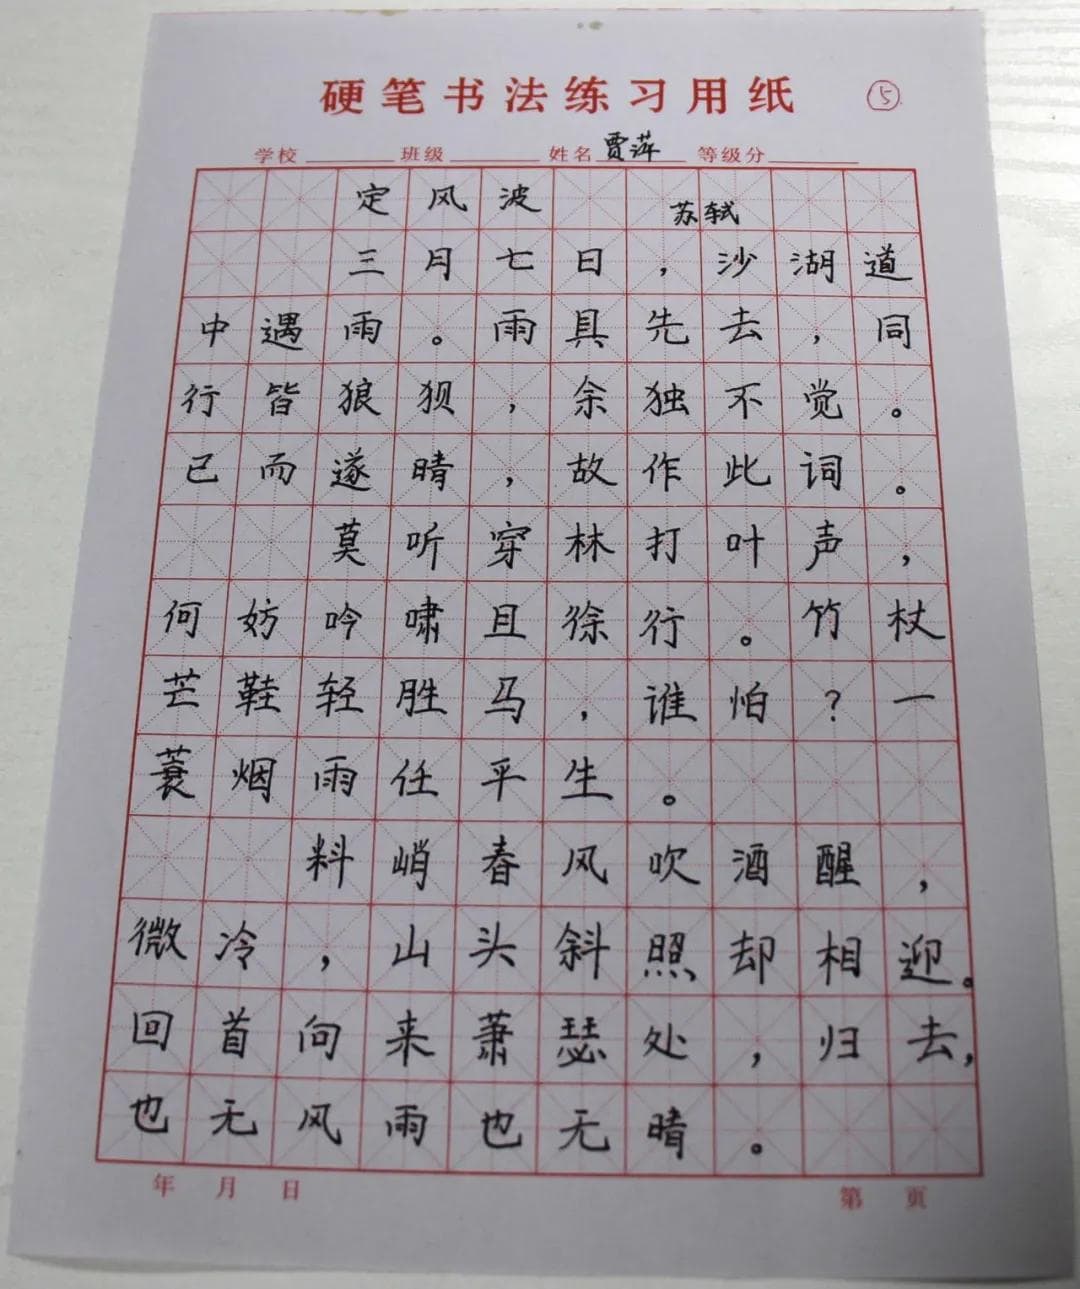 硬笔书法练习用纸 5
学校 班级 姓名 贾萍 等级分
定风波 苏轼
三月七日，沙湖道
中遇雨。雨具先去，同
行皆狼狈，余独不觉。
已而遂晴，故作此词。
莫听穿林打叶声，
何妨吟啸且徐行。竹杖
芒鞋轻胜马，谁怕？一
蓑烟雨任平生。
料峭春风吹酒醒，
微冷，山头斜照却相迎。
回首向来萧瑟处，归去，
也无风雨也无晴。
年 月 日 第 页